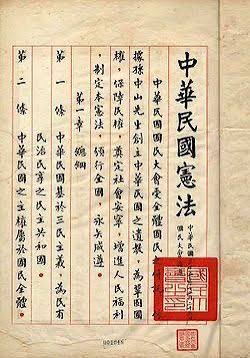 中華民國憲法
中華民國
國民大會
中華民國國民大會受全體國民
據孫中山先生創立中華民國之遺教，為鞏固國
權，保障民權，奠定社會安寧，增進人民福利
，制定本憲法，頒行全國，永矢咸遵。
第一章 總綱
第一條 中華民國基於三民主義，為民有
民治民享之民主共和國。
第二條 中華民國之主權屬於國民全體。